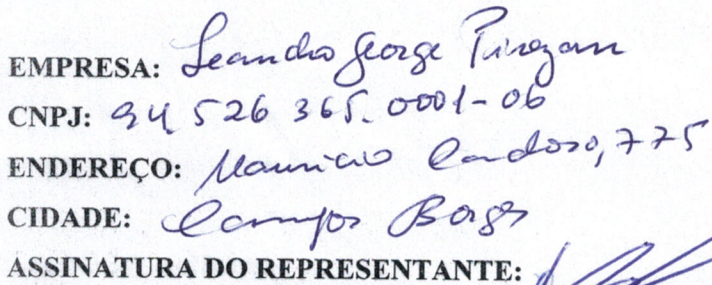 EMPRESA: Leandro George
CNPJ: 94 526 365.0001-06
ENDEREÇO: Mauricio Cardoso, 775
CIDADE: Campos Borges
ASSINATURA DO REPRESENTANTE: